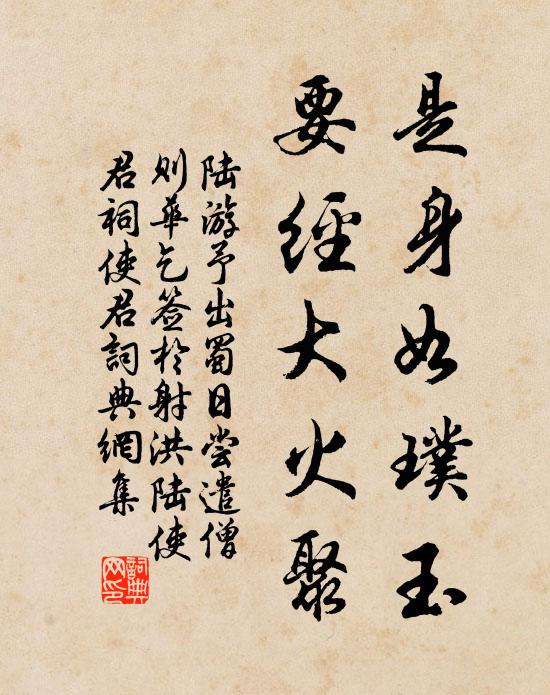 是身如璞玉
要經大火聚
陆游予出蜀日尝遣僧
则華乞签於射洪陆使
君祠使君詞典網集
詞典
网印